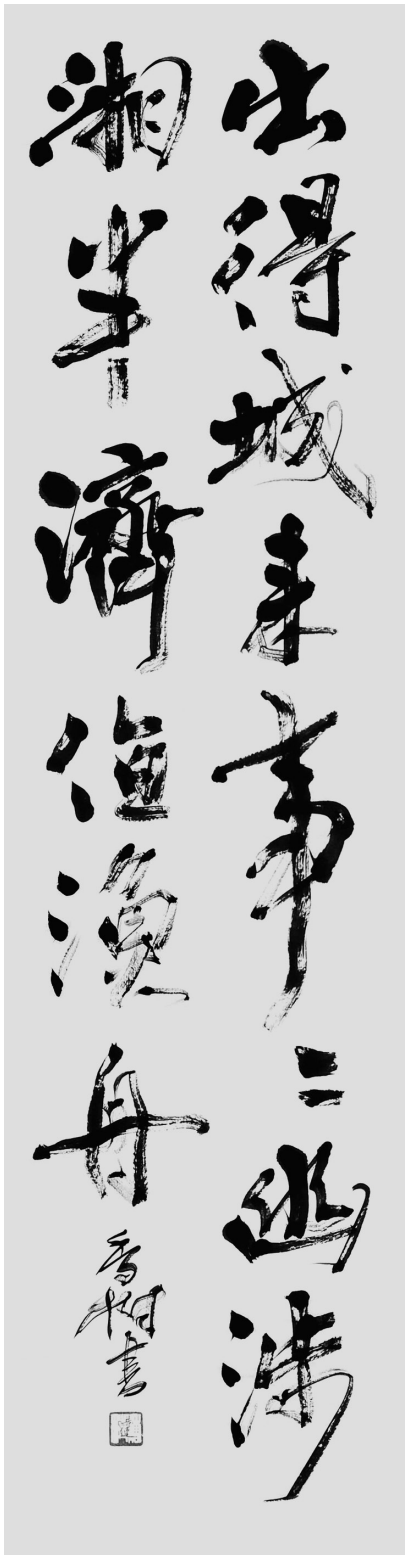 出得城来事々幽涉
湘半濟值漁舟
香樹書